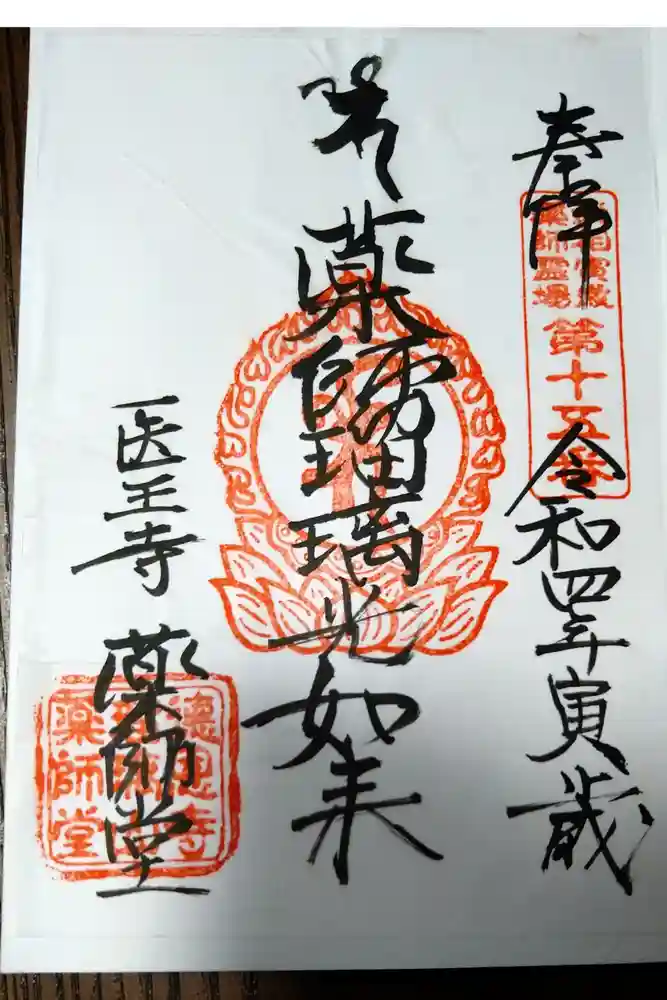 奉拝
武相寅歳
薬師霊場
第十五番
令和四年寅歳
薬師瑠璃光如来
医王寺
薬師堂
薬師堂